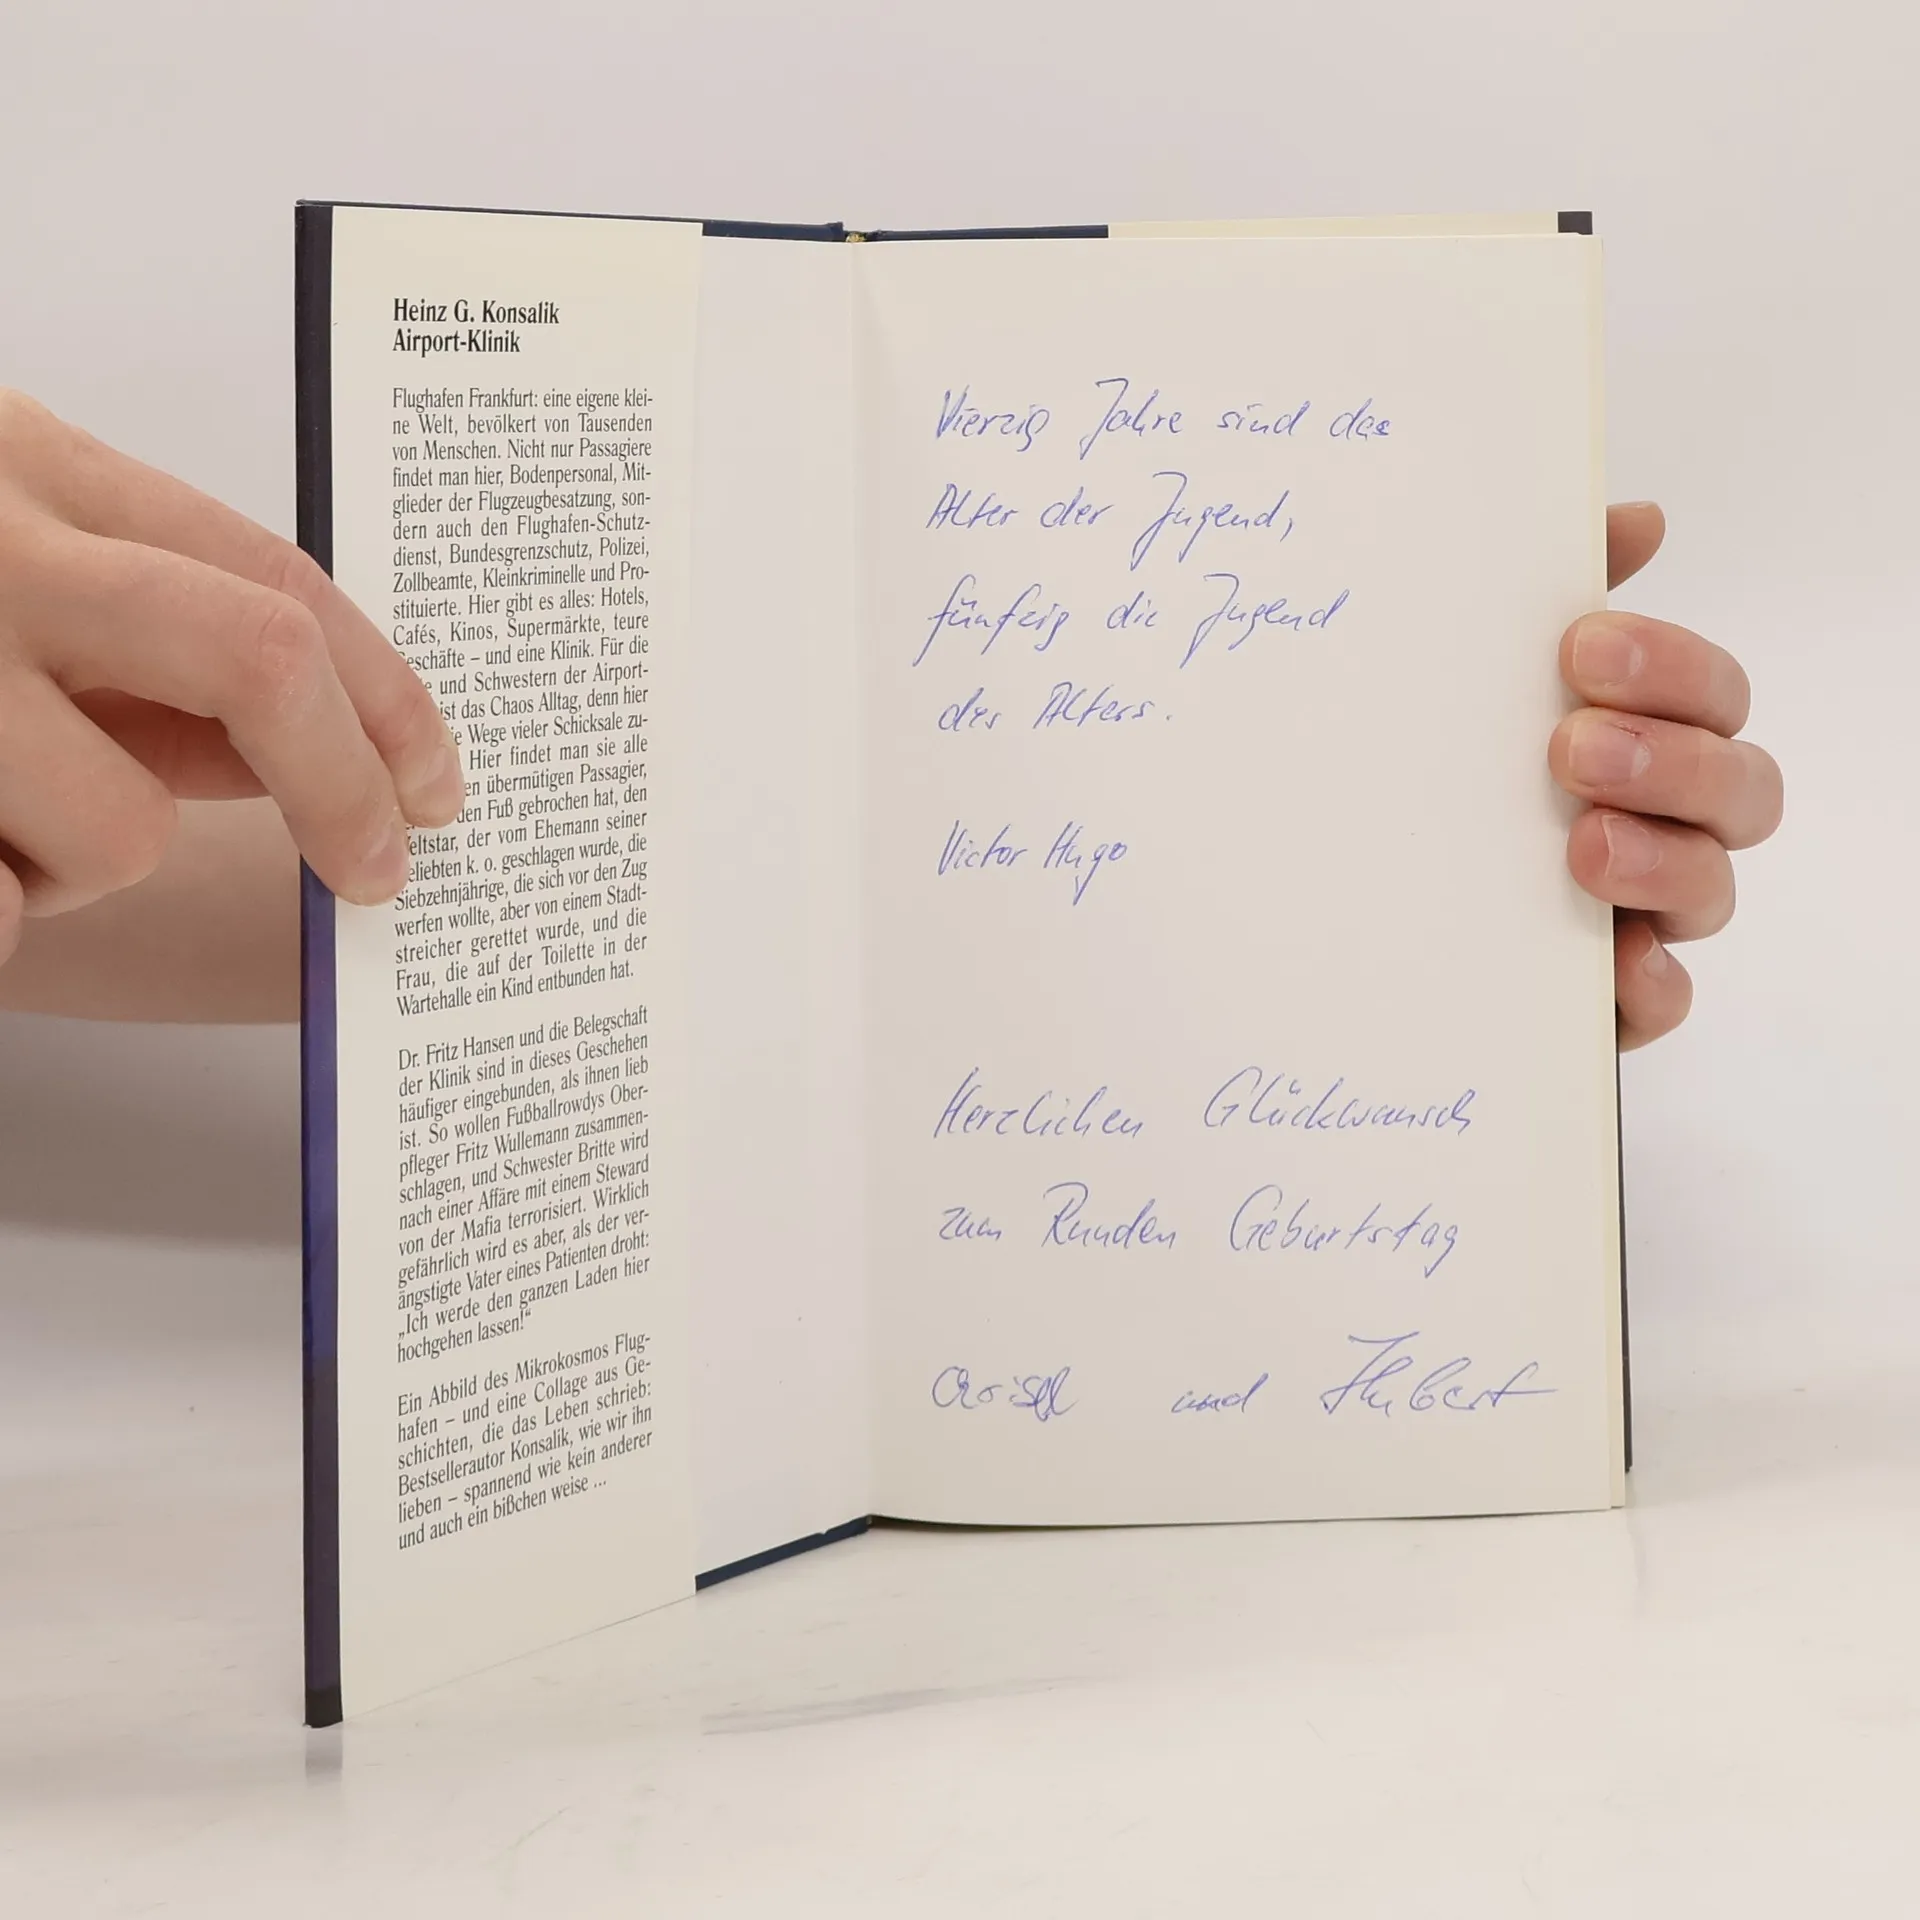 Heinz G. Konsalik
Airport-Klinik
Flughafen Frankfurt: eine eigene klei-
ne Welt, bevölkert von Tausenden
von Menschen. Nicht nur Passagiere
findet man hier, Bodenpersonal, Mit-
glieder der Flugzeugbesatzung, son-
dern auch den Flughafen-Schutz-
dienst, Bundesgrenzschutz, Polizei,
Zollbeamte, Kleinkriminelle und Pro-
stituierte. Hier gibt es alles: Hotels,
Cafés, Kinos, Supermärkte, teure
eschäfte – und eine Klinik. Für die
e und Schwestern der Airport-
ist das Chaos Alltag, denn hier
ie Wege vieler Schicksale zu-
Hier findet man sie alle
en übermütigen Passagier,
den Fuß gebrochen hat, den
eltstar, der vom Ehemann seiner
eliebten k. o. geschlagen wurde, die
Siebzehnjährige, die sich vor den Zug
werfen wollte, aber von einem Stadt-
streicher gerettet wurde, und die
Frau, die auf der Toilette in der
Wartehalle ein Kind entbunden hat.
Dr. Fritz Hansen und die Belegschaft
der Klinik sind in dieses Geschehen
häufiger eingebunden, als ihnen lieb
ist. So wollen Fußballrowdys Ober-
pfleger Fritz Wullemann zusammen-
schlagen, und Schwester Britte wird
nach einer Affäre mit einem Steward
von der Mafia terrorisiert. Wirklich
gefährlich wird es aber, als der ver-
ängstigte Vater eines Patienten droht:
„Ich werde den ganzen Laden hier
hochgehen lassen!“
Ein Abbild des Mikrokosmos Flug-
hafen – und eine Collage aus Ge-
schichten, die das Leben schrieb:
Bestsellerautor Konsalik, wie wir ihn
lieben – spannend wie kein anderer
und auch ein bißchen weise ...
Vierzig Jahre sind das
Alter der Jugend,
fünfzig die Jugend
des Alters.
Victor Hugo
Herzlichen Glückwunsch
zum Runden Geburtstag
und Hubert